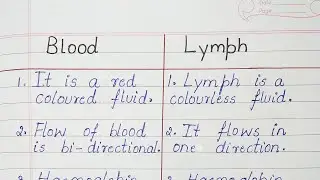 Blood
Lymph
1. It is a red
coloured fluid.
1. Lymph is a
colourless fluid.
2. Flow of blood
is bi-directional.
2. It flows in
one direction.
3. Haemoglobin
3. Haemoglobin